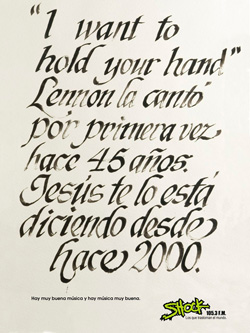 "I want to
hold your hand"
Lennon la cantó
por primera vez
hace 45 años.
Jesús te lo está
diciendo desde
hace 2000.
Hay muy buena música y hay música muy buena.
Shock
105.3 F.M.